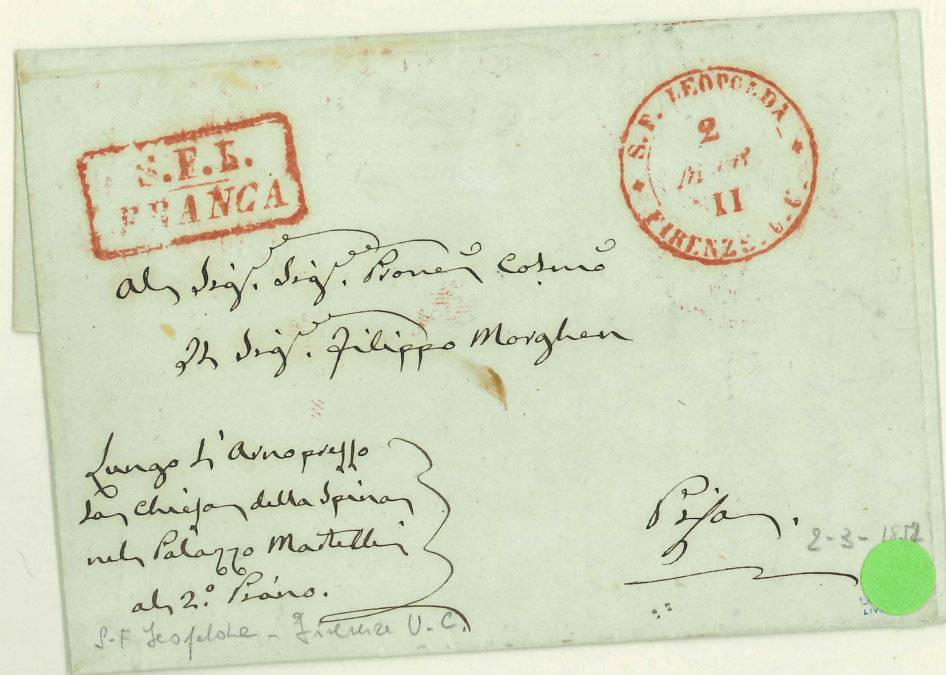 S.F.L.
FRANCA
S.F. LEOPOLDA
2
MAR
11
FIRENZE. U.C.
Al Sig.r Sig.r Prone Colmo
Il Sig.r Filippo Morghen
Lungo L'Arno presso
La Chiesa della Spina
nel Palazzo Martelli
al 2.o Piano.
Pisa.
2-3-1852
S-F Leopolda - Firenze U.C.